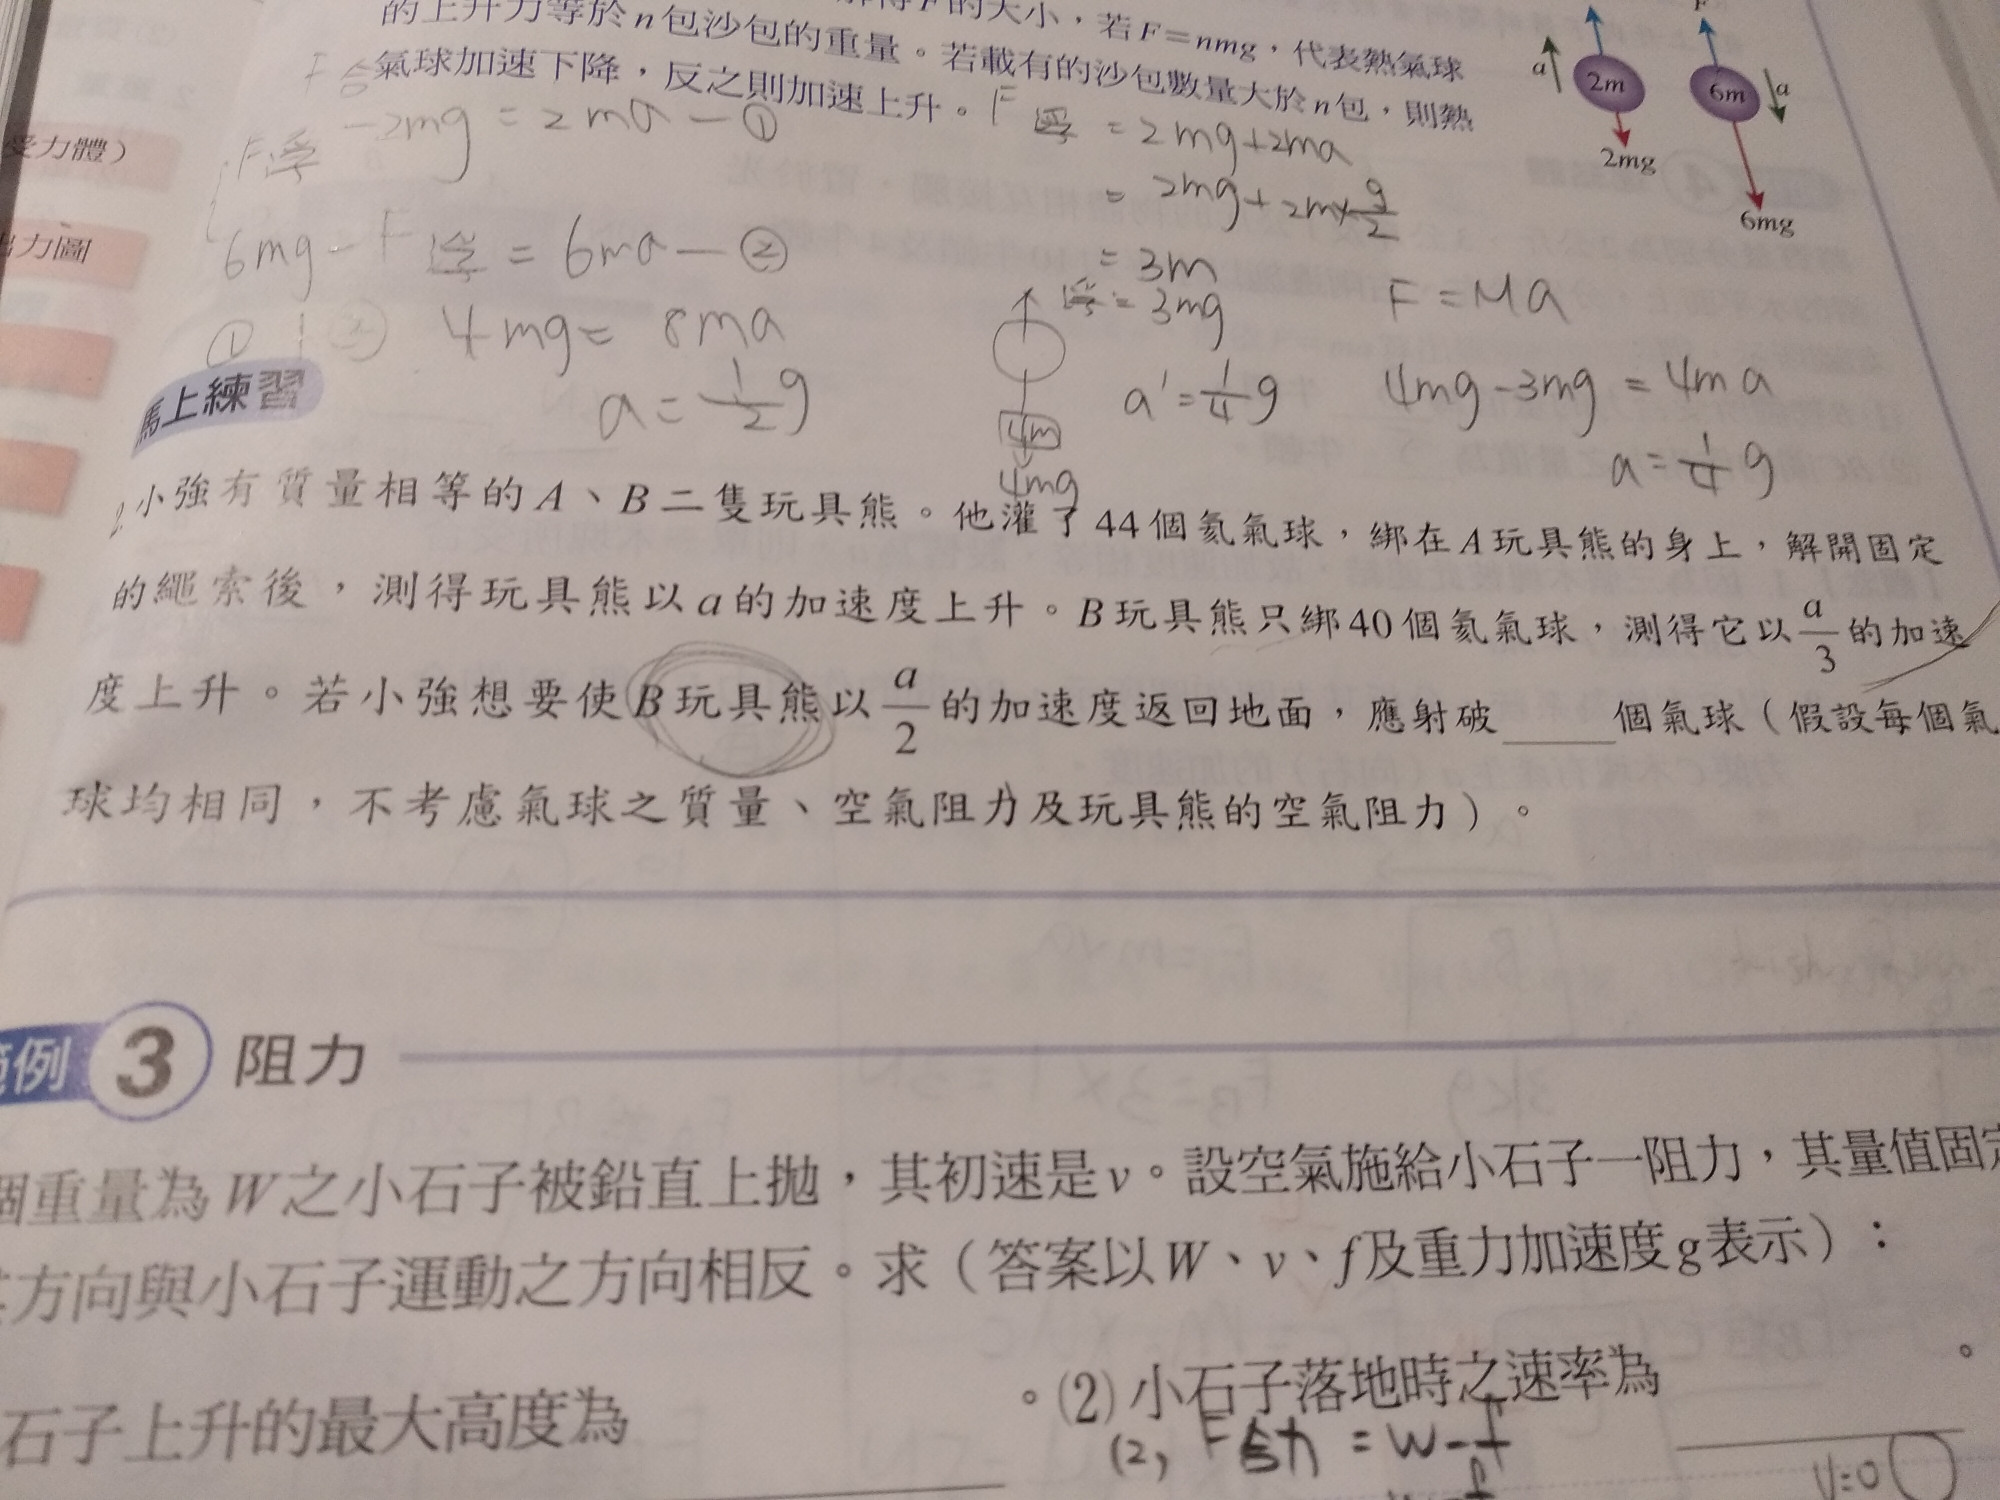 的大小，若F=nmg，代表熱氣球
的上升力等於n包沙包的重量。若載有的沙包數量大於n包，則熱
氣球加速下降，反之則加速上升。
a
2m
2mg
6m
a
6mg
受力體）
力圖
F合
F浮-2mg=2ma-①
6mg-F浮=6ma-②
① ② 4mg=8ma
a=1/2g
F浮=2mg+2ma
=2mg+2m×g/2
=3m
浮=3mg
4m
4mg
a'=1/4g
F=Ma
4mg-3mg=4ma
a=1/4g
馬上練習
2.小強有質量相等的A、B二隻玩具熊。他灌了44個氦氣球，綁在A玩具熊的身上，解開固定
的繩索後，測得玩具熊以a的加速度上升。B玩具熊只綁40個氦氣球，測得它以a/3的加速
度上升。若小強想要使B玩具熊以a/2的加速度返回地面，應射破____個氣球（假設每個氣
球均相同，不考慮氣球之質量、空氣阻力及玩具熊的空氣阻力）。
範例 3 阻力
個重量為W之小石子被鉛直上拋，其初速是v。設空氣施給小石子一阻力，其量值固定
方向與小石子運動之方向相反。求（答案以W、v、f及重力加速度g表示）：
石子上升的最大高度為____。(2)小石子落地時之速率為____。
(2) F合力=W-f
f
V=0